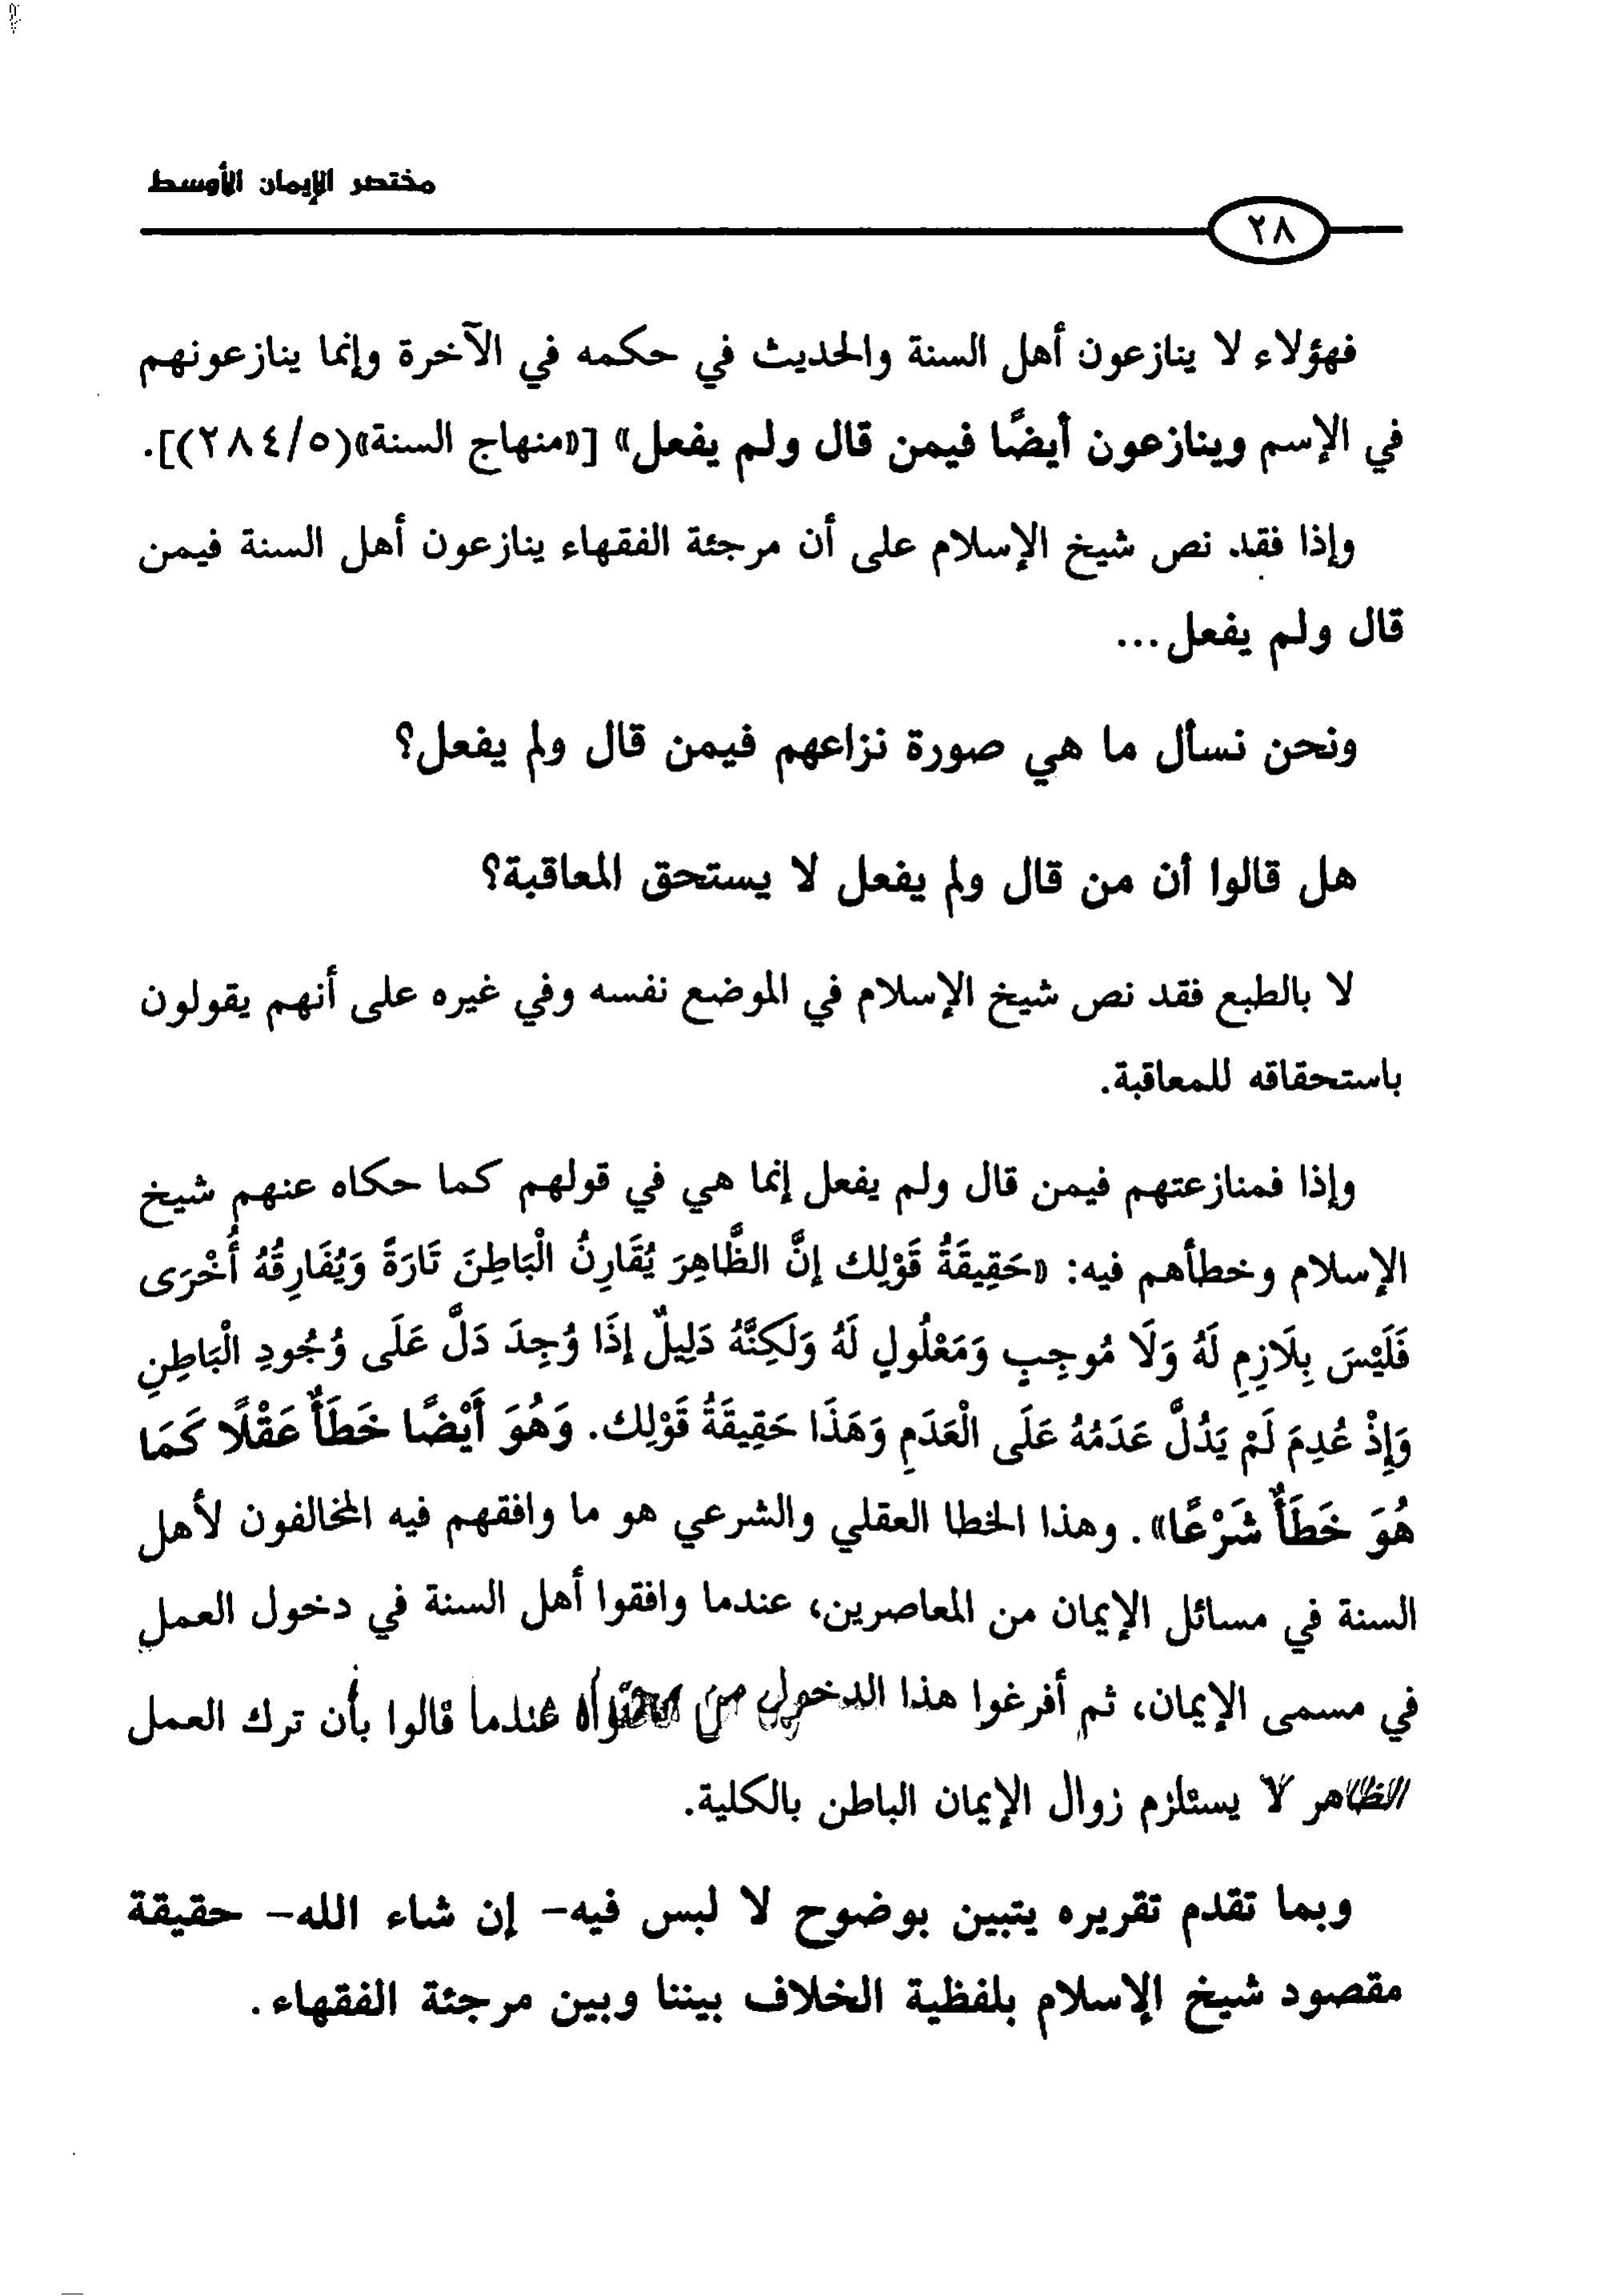 مختصر الإيمان الأوسط
٢٨
فهؤلاء لا ينازعون أهل السنة والحديث في حكمه في الآخرة وإنما ينازعونهم
في الإسم وينازعون أيضًا فيمن قال ولم يفعل» [«منهاج السنة»(٢٨٤/٥)].
وإذا فقد نص شيخ الإسلام على أن مرجئة الفقهاء ينازعون أهل السنة فيمن
قال ولم يفعل...
ونحن نسأل ما هي صورة نزاعهم فيمن قال ولم يفعل؟
هل قالوا أن من قال ولم يفعل لا يستحق المعاقبة؟
لا بالطبع فقد نص شيخ الإسلام في الموضع نفسه وفي غيره على أنهم يقولون
باستحقاقه للمعاقبة.
وإذا فمنازعتهم فيمن قال ولم يفعل إنما هي في قولهم كما حكاه عنهم شيخ
الإسلام وخطأهم فيه: «حَقِيقَةُ قَوْلِك إنَّ الظَّاهِرَ يُقَارِنُ الْبَاطِنَ تَارَةً وَيُفَارِقُهُ أُخْرَى
فَلَيْسَ بِلَازِمِ لَهُ وَلَا مُوجِبٍ وَمَعْلُولٍ لَهُ وَلَكِنَّهُ دَلِيلٌ إذَا وُجِدَ دَلَّ عَلَى وُجُودِ الْبَاطِنِ
وَإِذْ عُدِمَ لَمْ يَدُلَّ عَدَمُهُ عَلَى الْعَدَمِ وَهَذَا حَقِيقَةُ قَوْلِك. وَهُوَ أَيْضًا خَطَأٌ عَقْلًا كَمَا
هُوَ خَطَأٌ شَرْعًا». وهذا الخطا العقلي والشرعي هو ما وافقهم فيه المخالفون لأهل
السنة في مسائل الإيمان من المعاصرين، عندما وافقوا أهل السنة في دخول العمل
في مسمى الإيمان، ثم أفرغوا هذا الدخول من محتواه عندما قالوا بأن ترك العمل
الظاهر لا يستلزم زوال الإيمان الباطن بالكلية.
وبما تقدم تقريره يتبين بوضوح لا لبس فيه- إن شاء الله- حقيقة
مقصود شيخ الإسلام بلفظية الخلاف بيننا وبين مرجئة الفقهاء.